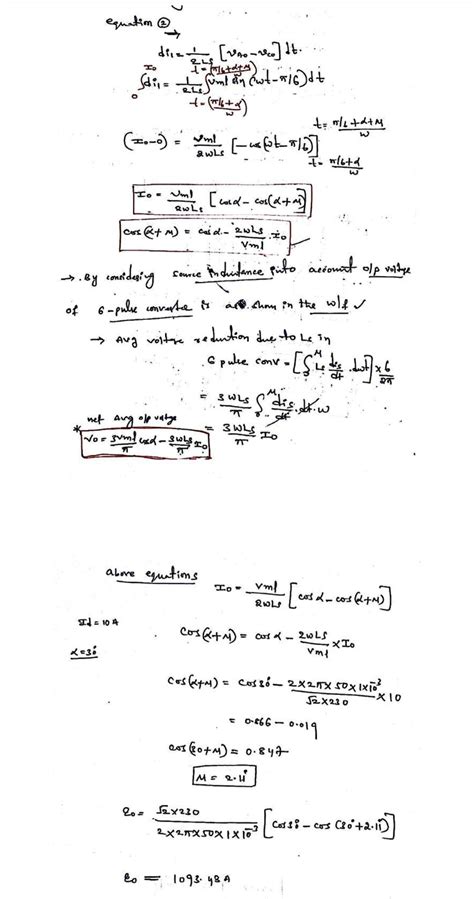 equation ②
→
di₁ = 1/2Ls [VAO - VCO] dt.
I₀ t = (π/6+α+M)/ω
∫di₁ = 1/2Ls ∫ Vml sin (ωt - π/6) dt
0 t = (π/6+α)/ω
t = π/6+α+M/ω
(I₀-0) = Vml/2ωLs [-cos(ωt - π/6)]
t = π/6+α/ω
I₀ = Vml/2ωLs [cosα - cos(α+M)]
cos(α+M) = cosα - 2ωLs/Vml · I₀
→ By considering source inductance into account o/p voltage
of 6-pulse converter is as shown in the w/f ✓
→ Avg voltage reduction due to Ls in
6 pulse conv = [∫₀ᴹ Ls dis/dt · dωt] × 6/2π
= 3ωLs/π ∫₀ᴹ dis/dt · dt · ω
net Avg o/p voltage
= 3ωLs/π I₀
* V₀ = 3Vml/π cosα - 3ωLs/π I₀
above equations
I₀ = Vml/2ωLs [cosα - cos(α+M)]
Id = 10 A
cos(α+M) = cosα - 2ωLs/Vml × I₀
α = 30°
cos(α+M) = cos30° - 2×2π×50×1×10⁻³/√2×230 × 10
= 0.866 - 0.019
cos(30+M) = 0.847
M = 2.11°
I₀ = √2×230/2×2π×50×1×10⁻³ [cos30° - cos(30°+2.11°)]
I₀ = 1093.48A